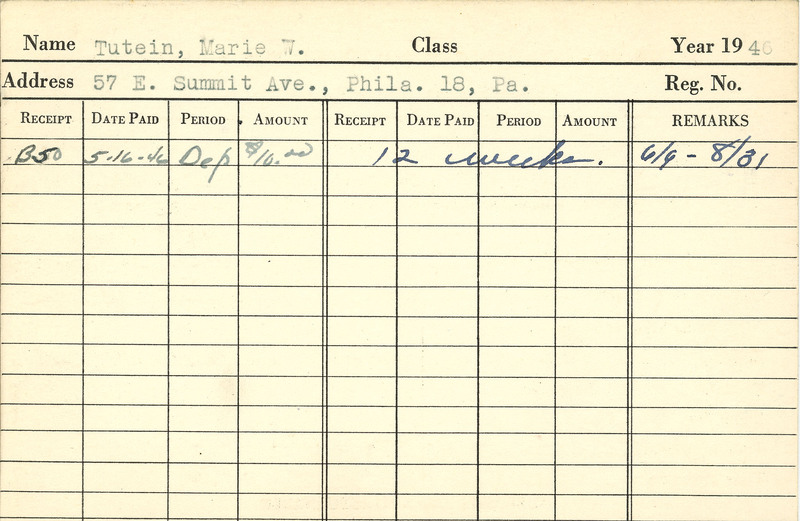 Name Tutein, Marie W. Class Year 1946
Address 57 E. Summit Ave., Phila. 18, Pa. Reg. No.
RECEIPT DATE PAID PERIOD AMOUNT RECEIPT DATE PAID PERIOD AMOUNT REMARKS
B50 5-16-46 Dep $10.00 12 weeks. 6/9 - 8/31